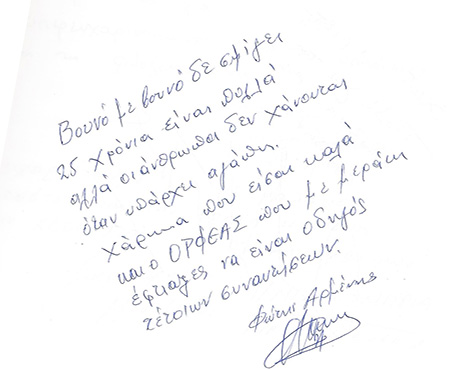 Βουνό με βουνό δε σμίγει
25 χρόνια είναι πολλά
αλλά οι άνθρωποι δεν χάνονται
όταν υπάρχει αγάπη.
Χάρηκα που είσαι καλά
και ο ΟΡΦΕΑΣ που με μεράκι
έφτιαξες να είναι οδηγός
τέτοιων συναντήσεων.
Φώτης Αρμένης